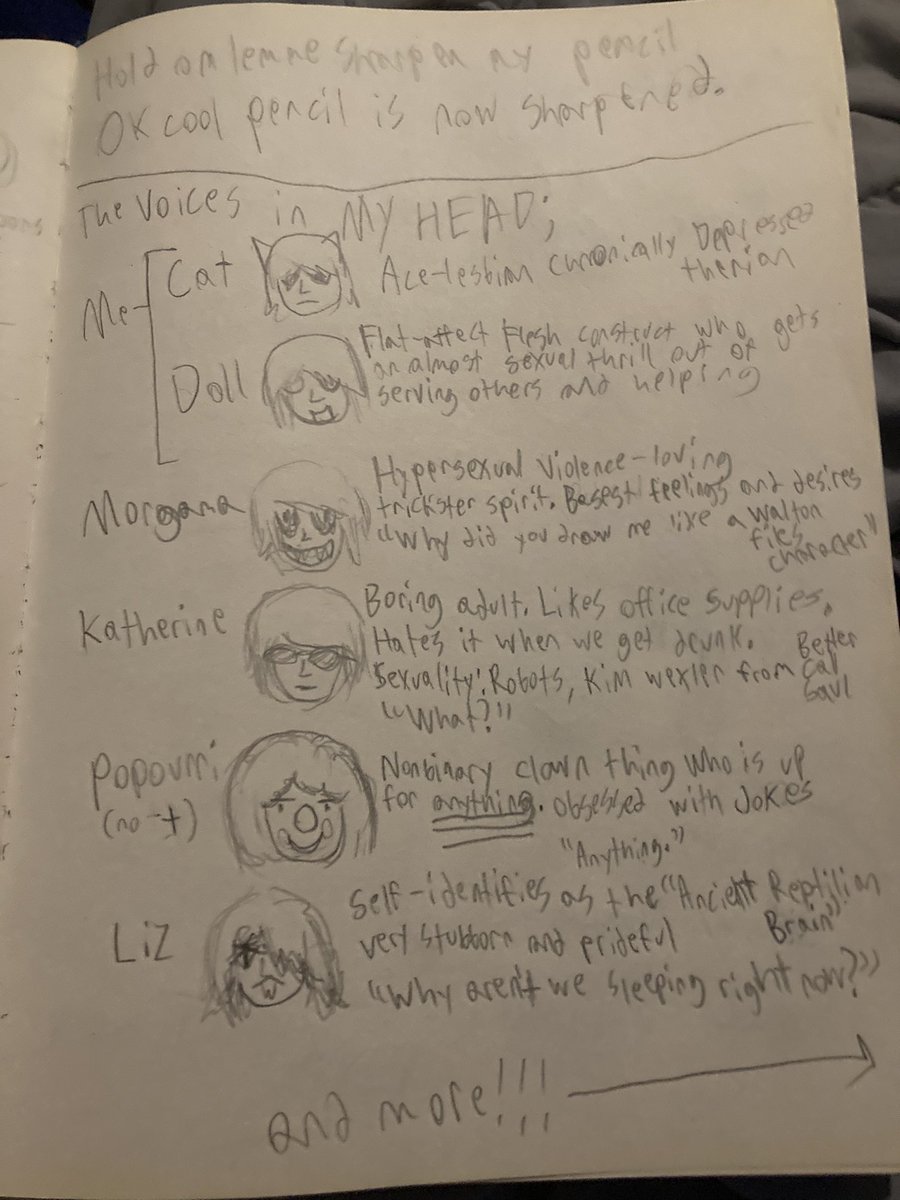 Hold on lemme sharpen my pencil
OK cool pencil is now sharptened.
The Voices in MY HEAD;
Me-
Cat
Ace-lesbian chronically Depressed
therian
Doll
Flat-affect flesh construct who gets
an almost sexual thrill out of
serving others and helping
Morgana
Hypersexual violence-loving
trickster spirit. Basest feelings and desires
"Why did you draw me like a walton
files
character"
Katherine
Boring adult. Likes office supplies.
Hates it when we get drunk.
Sexuality: Robots, Kim wexler from Better
Call
Saul
"What?"
Popourri
(no -t)
Nonbinary clown thing who is up
for anything. obsessed with Jokes
"Anything."
Liz
Self-identifies as the "Ancient Reptilian
Brain"
very stubborn and prideful
"Why aren't we sleeping right now?"
and more!!!